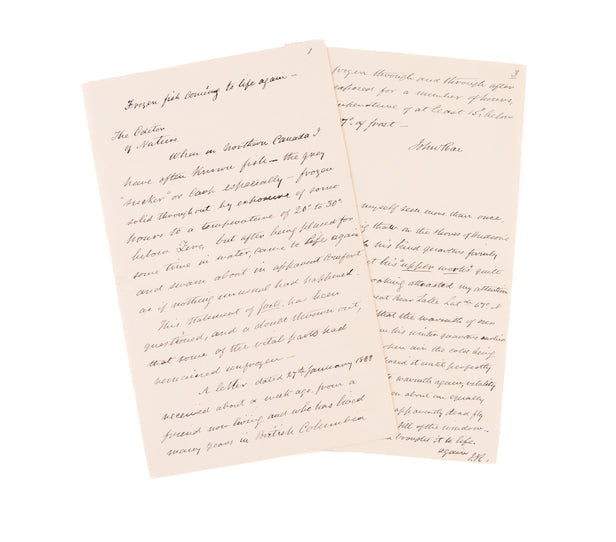 1
Frozen fish coming to life again—
The Editor
of Nature
When in Northern Canada I
have often known fish—the grey
"sucker" or Carp especially—frozen
solid throughout by exposure of some
hours to a temperature of 20° to 30°
below Zero, but after being placed for
some time in water, came to life again
and swam about in apparent Comfort
as if nothing unusual had happened.
This statement of fact has been
questioned, and a doubt thrown out,
that some of the vital parts had
remained unfrozen—
A letter dated 27th January 1888
received about a week ago, from a
friend now living and who has lived
many years in British Columbia
3
frozen through and through after
exposed for a number of hours,
temperature of at least 15° below
7° of frost—
John Rae
myself seen more than once
on the shores of Hudson's
his hind quarters firmly
his "upper works" quite
croaking attracted my attention
Great Bear Lake Lat. 67° N
that the warmth of
his winter quarters
open air the cold being
it until perfectly
warmth again, vitality
about an equally
apparently dead fly
sill of the window
brought it to life
again J.R.